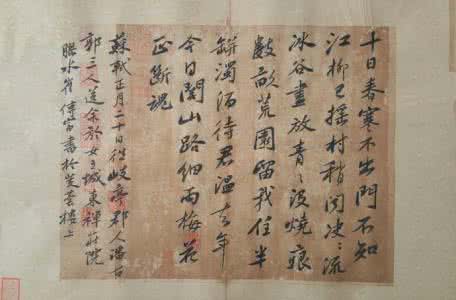 十日春寒不出門不知
江柳已搖村稍聞決〻流
冰谷盡放青〻沒燒痕
數畝荒園留我住半
缾濁酒待君溫去年
今日關山路細雨梅花
正斷魂
蘇軾正月二十日往岐亭郡人潘古
郭三人送余於女王城東禪莊院
水書於樓上